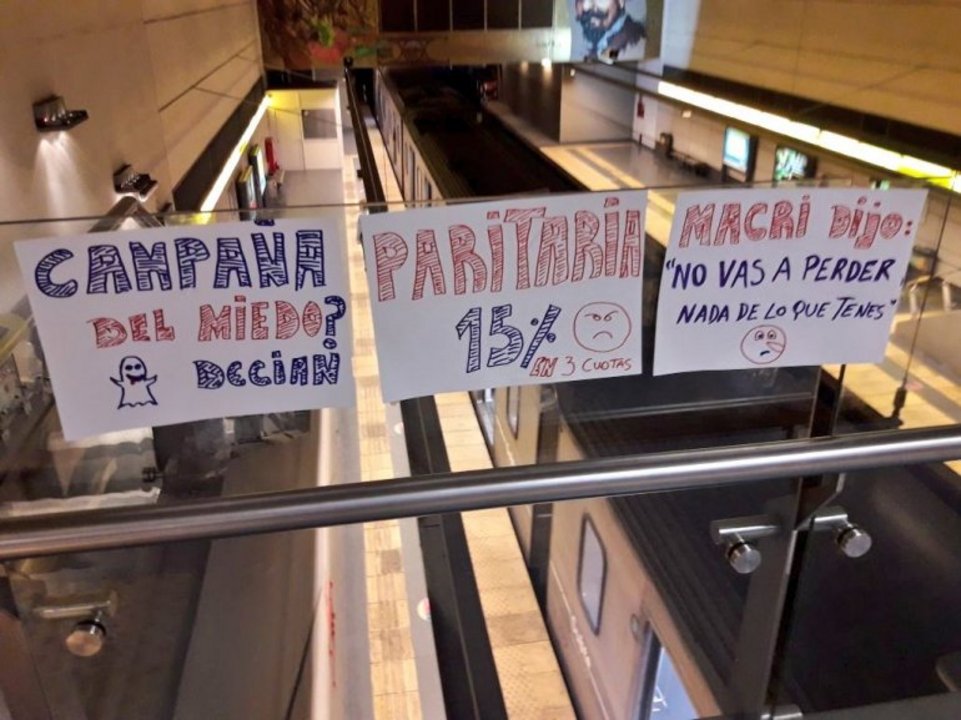 CAMPAÑA
DEL MIEDO?
DECIAN
PARITARIA
15%
EN 3 CUOTAS
MACRI DIJO:
"NO VAS A PERDER
NADA DE LO QUE TENES"